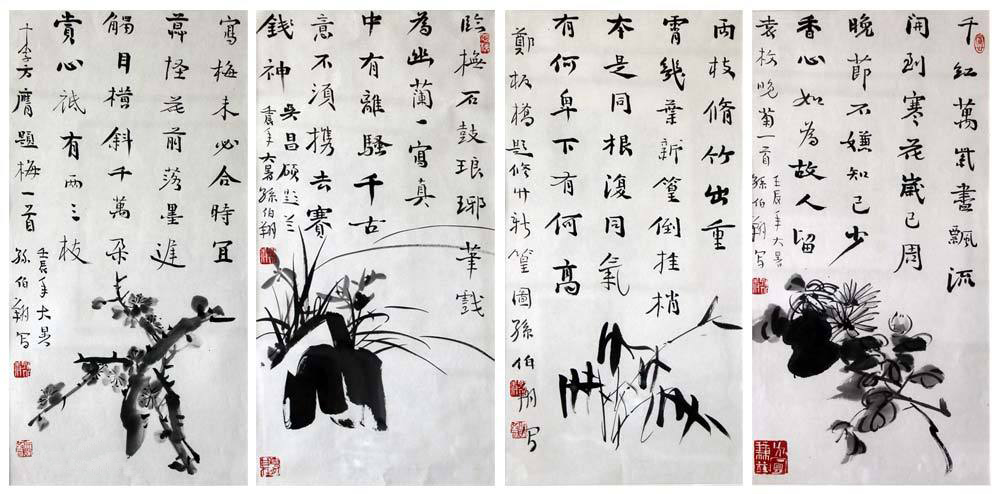 寫梅未必合時宜
莫怪花前落墨遲
觸目橫斜千萬朵
賞心祇有兩三枝
李方膺題梅一首
壬辰年大暑
孫伯翔寫
臨橅石鼓琅琊筆戲
為幽蘭一寫真
中有離騷千古
意不須攜去賽
錢神
吳昌碩題蘭
年大暑孫伯翔
兩枝脩竹出重
霄幾葉新篁倒挂梢
本是同根復同氣
有何卑下有何高
鄭板橋題修竹新篁圖孫伯翔寫
千紅萬紫盡飄流
開到寒花歲已周
晚節不嫌知己少
香心如為故人留
袁枚晚菊一首
壬辰年大暑
孫伯翔寫